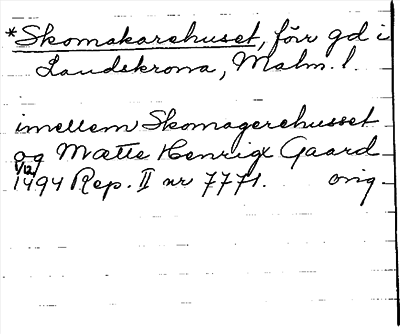 *Skomakarehuset, förr gd i
Landskrona, Malm. l.
imellem Skomagerehusset
og Mætte Henrigx Gaard
1/12 1494 Rep. II nr 7771. orig